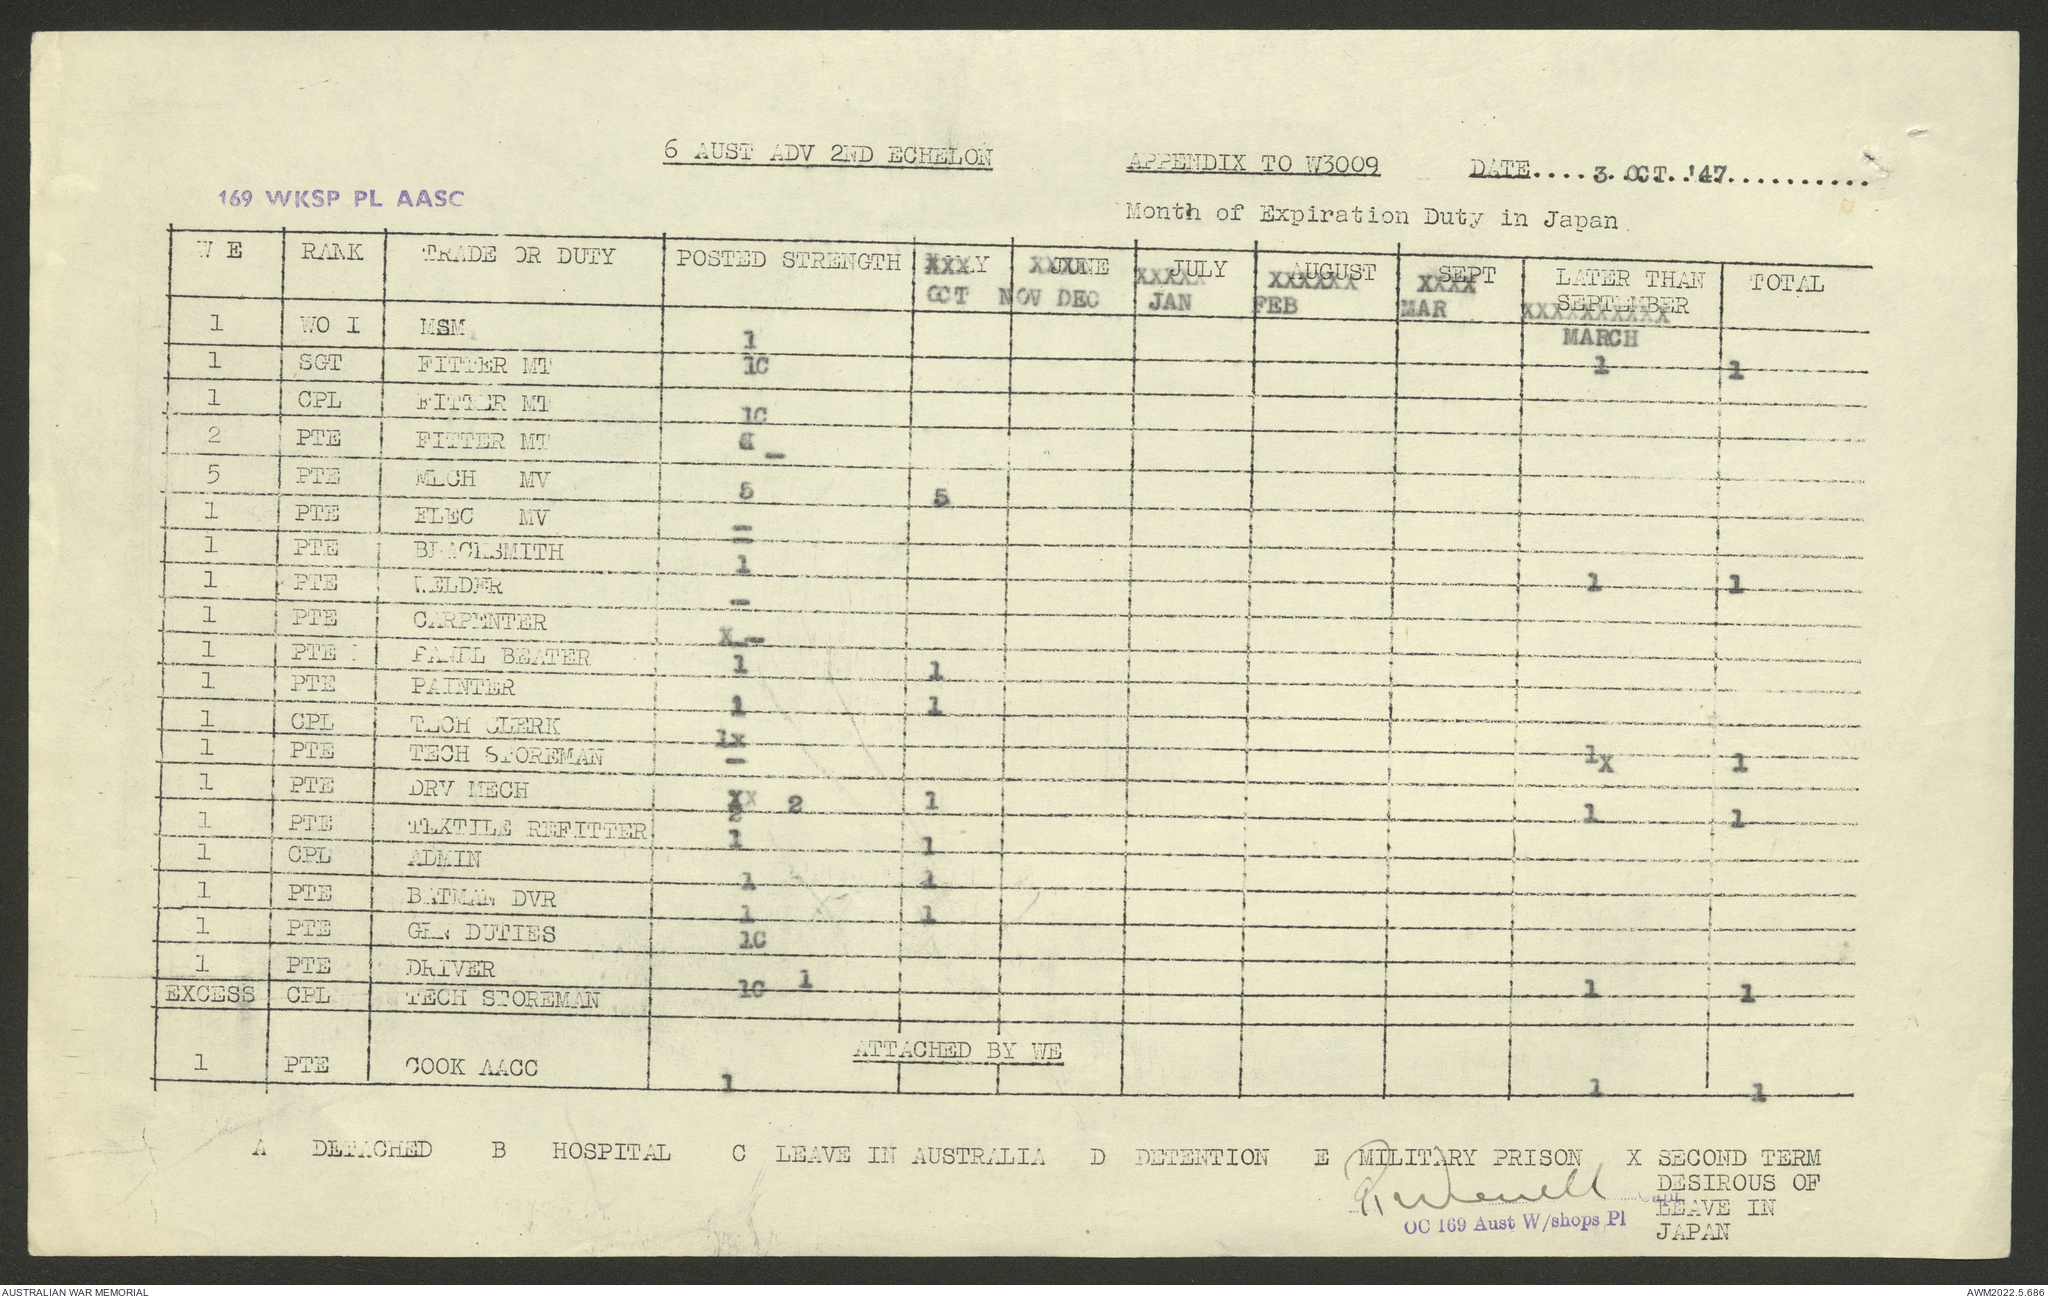 6 AUST ADV 2ND ECHELON APPENDIX TO W3009 DATE.....3 OCT '47..........
169 WKSP PL AASC
Month of Expiration Duty in Japan
W E RANK TRADE OR DUTY POSTED STRENGTH MAY JUNE JULY AUGUST SEPT LATER THAN SEPTEMBER TOTAL
OCT NOV DEC JAN FEB MAR MARCH
1 WO I MSM 1
1 SGT FITTER MT 1C 1 1
1 CPL FITTER MT 1C
2 PTE FITTER MT -
5 PTE MECH MV 5 5
1 PTE ELEC MV -
1 PTE BLACKSMITH 1
1 PTE WELDER - 1 1
1 PTE CARPENTER X -
1 PTE PANEL BEATER 1 1
1 PTE PAINTER 1 1
1 CPL TECH CLERK 1x
1 PTE TECH STOREMAN - 1x 1
1 PTE DRV MECH XX 2 2 1 1 1
1 PTE TEXTILE REFITTER 1 1
1 CPL ADMIN 1 1
1 PTE BATMAN DVR 1 1
1 PTE GEN DUTIES 1C
1 PTE DRIVER 1
EXCESS CPL TECH STOREMAN 1C 1 1
ATTACHED BY WE
1 PTE COOK AACC 1 1 1
A DETACHED B HOSPITAL C LEAVE IN AUSTRALIA D DETENTION E MILITARY PRISON X SECOND TERM
DESIROUS OF
LEAVE IN
JAPAN
Capt
OC 169 Aust W/shops Pl
AUSTRALIAN WAR MEMORIAL
AWM2022.5.686